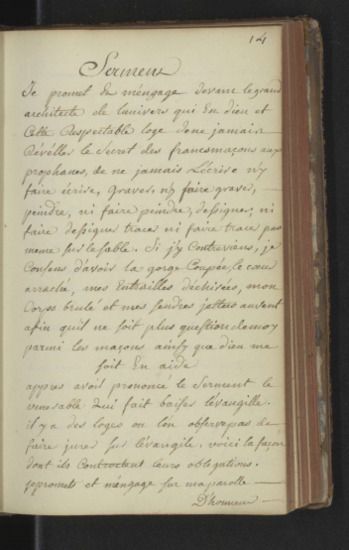 14
Serment
Je promet de m'engage devant le grand
architecte de lunivers qui En dieu et
Cette Respectable loge de ne jamais
Révéller le Secret des francsmaçons aux
prophanes, de ne jamais L'écrire n'y
faire écrire, graver, ny faire graver,
peindre, ni faire peindre, dessigner, ni
faire dessigner tracer ni faire tracer pas
meme sur le sable. Si j'y Contreviens, je
Consens d'avoir la gorge Coupée, le cœur
arraché, mes Entrailles déchirées, mon
Corps brulé et mes sendres jettées au vent
afin quil ne soit plus question demoy
parmi les maçons ainsy que dieu me
soit En aide
appres avoir prononcé le Serment le
venerable Lui fait baiser lévangille.
il y a des loges ou l'on observe pas de
faire jurer sur lévangile. voici la façon
dont ils Contractent leurs obligations.
je promets et m'engage sur ma parolle
D'honneur